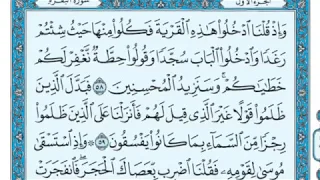 الجزء الأول سورة البقرة
وَإِذْ قُلْنَا ٱدْخُلُوا۟ هَٰذِهِ ٱلْقَرْيَةَ فَكُلُوا۟ مِنْهَا حَيْثُ شِئْتُمْ
رَغَدًا وَٱدْخُلُوا۟ ٱلْبَابَ سُجَّدًا وَقُولُوا۟ حِطَّةٌ نَّغْفِرْ لَكُمْ
خَطَٰيَٰكُمْ ۚ وَسَنَزِيدُ ٱلْمُحْسِنِينَ ٥٨ فَبَدَّلَ ٱلَّذِينَ
ظَلَمُوا۟ قَوْلًا غَيْرَ ٱلَّذِى قِيلَ لَهُمْ فَأَنزَلْنَا عَلَى ٱلَّذِينَ ظَلَمُوا۟
رِجْزًا مِّنَ ٱلسَّمَآءِ بِمَا كَانُوا۟ يَفْسُقُونَ ٥٩ ۞ وَإِذِ ٱسْتَسْقَىٰ
مُوسَىٰ لِقَوْمِهِۦ فَقُلْنَا ٱضْرِب بِّعَصَاكَ ٱلْحَجَرَ ۖ فَٱنفَجَرَتْ